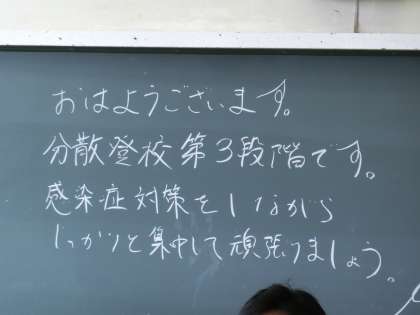 おはようございます。
分散登校第3段階です。
感染症対策をしながら
しっかりと集中して頑張りましょう。